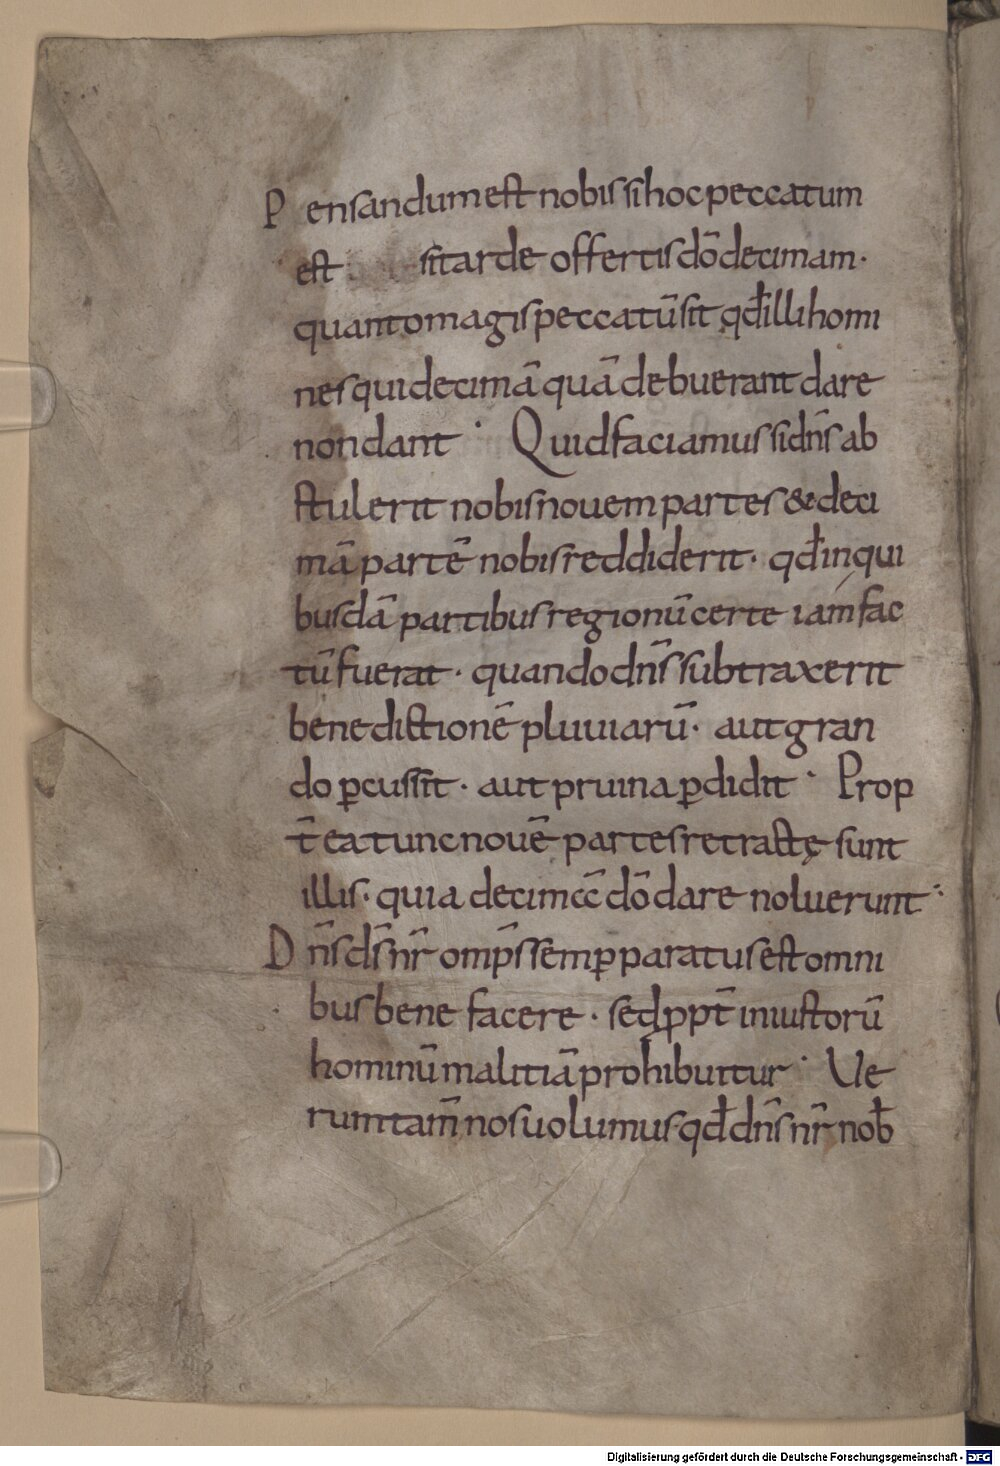 Pensandum est nobis si hoc peccatum
est si tarde offertis dō decimam·
quanto magis peccatū sit qđ illi homi
nes qui decimā quā debuerant dare
non dant· Quid faciamus si dn̄s ab
stulerit nobis nouem partes & deci
mā partē nobis reddiderit· qđ in qui
busdā partibus regionū certe iam fac
tū fuerat· quando dn̄s subtraxerit
benedictionē pluuiarū· aut gran
do ꝑcussit· aut pruina ꝑdidit· Prop
t̄ ea tunc nouē partes retractę sunt
illis· quia decimā dō dare noluerunt·
Dn̄s ds̄ nr̄ omp̄s semꝑ paratus est omni
bus bene facere· sed ꝓpt̄ iniustorū
hominū malitiā prohibuitur· Ue
rumtam̄ nos uolumus qđ dn̄s nr̄ nob̄
Digitalisierung gefördert durch die Deutsche Forschungsgemeinschaft - DFG